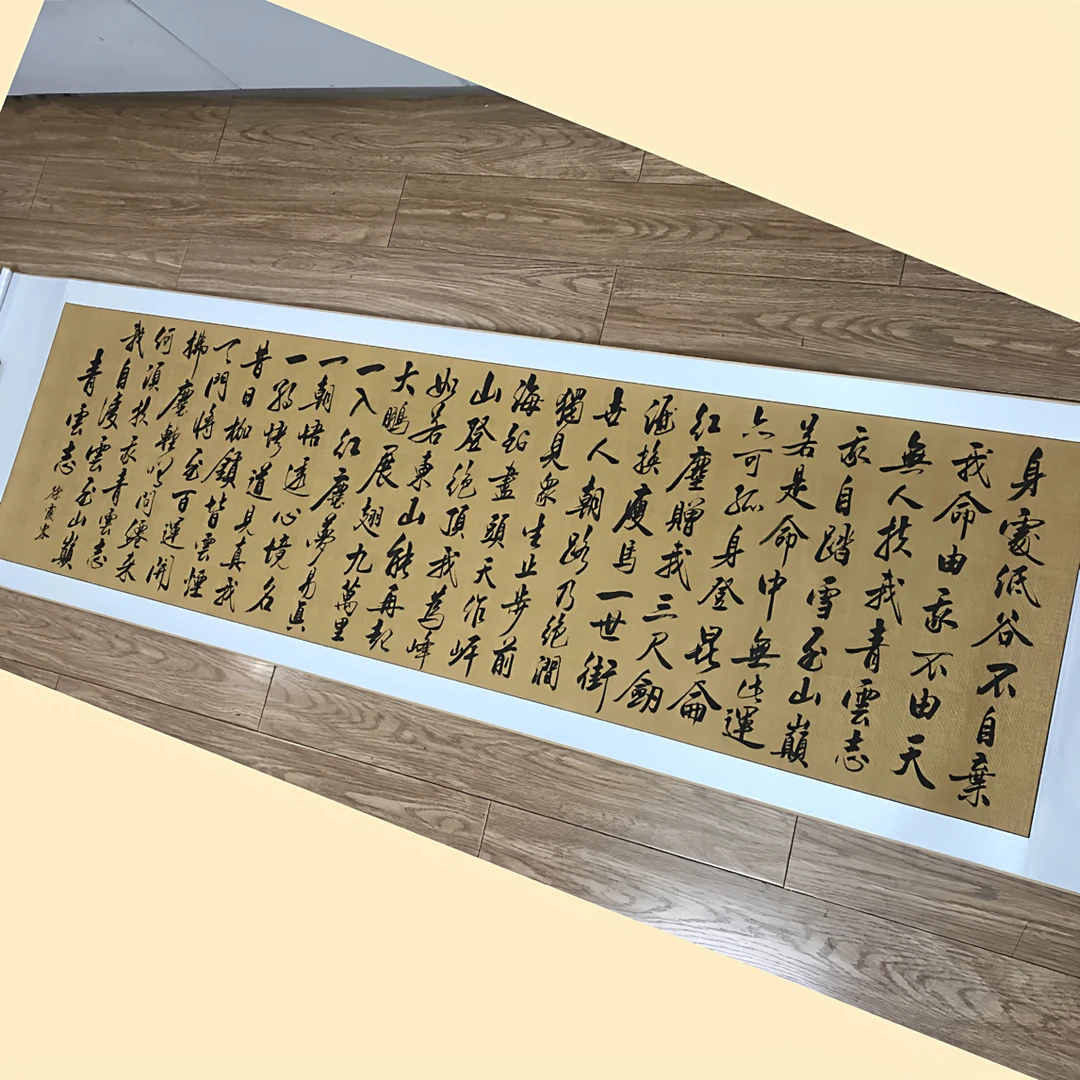 身處低谷不自棄
我命由我不由天
無人扶我青雲志
我自踏雪至山巔
若是命中無此運
亦可孤身登昆侖
紅塵贈我三尺劍
酒換瘦馬一世街
世人朝路乃絕澗
獨見眾生止步前
海到盡頭天作岸
山登絕頂我為峰
如若東山能再起
大鵬展翅九萬里
一入紅塵夢易真
一朝悟透心境名
一朝悟道見真我
昔日枷鎖皆雲煙
天門將至百運開
拂塵輕笑問緣來
何須扶我青雲志
我自凌雲至山巔
青雲志